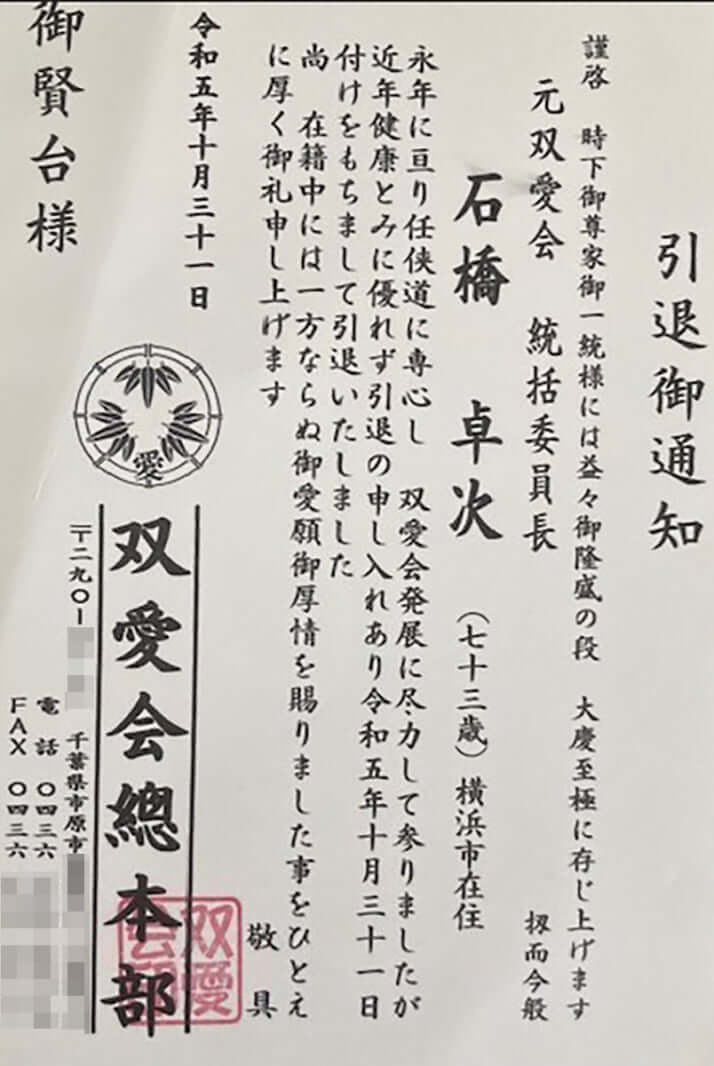 引退御通知
謹啓　時下御尊家御一統様には益々御隆盛の段　大慶至極に存じ上げます
扨而今般
元双愛会　統括委員長
石橋　卓次　（七十三歳）横浜市在住
永年に亘り任侠道に専心し　双愛会発展に尽力して参りましたが
近年健康とみに優れず引退の申し入れあり令和五年十月三十一日
付けをもちまして引退いたしました
尚　在籍中には一方ならぬ御愛願御厚情を賜りました事をひとえ
に厚く御礼申し上げます
敬具
令和五年十月三十一日
愛
双愛会總本部
双愛
〒二九〇ー
千葉県市原市
電話　〇四三六
FAX　〇四三六
御賢台様